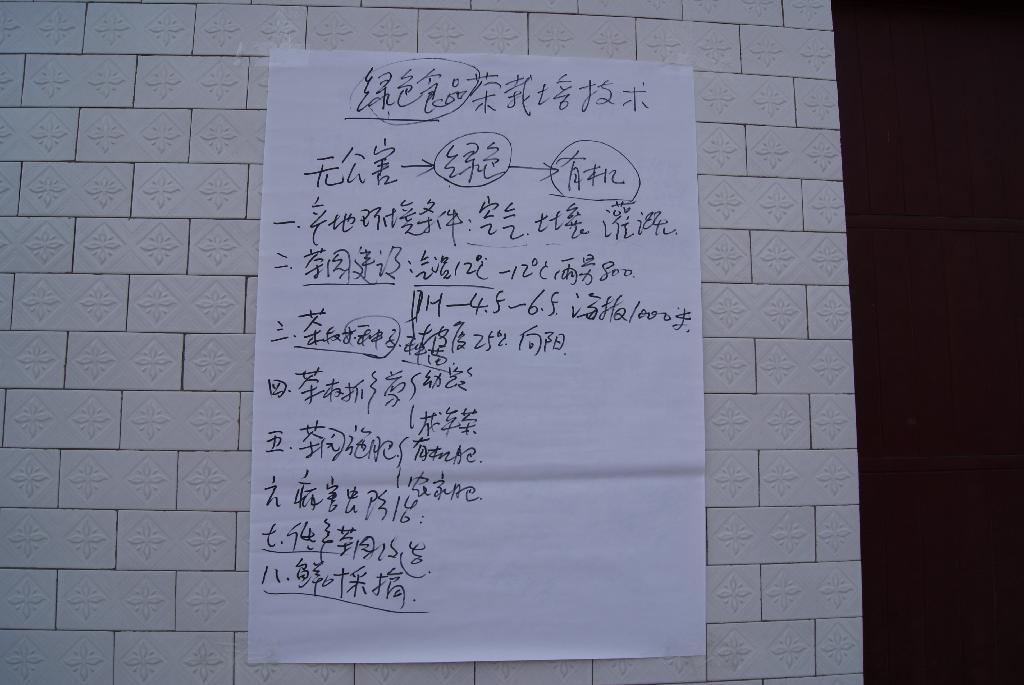 绿色食品茶栽培技术
无公害→绿色→有机
一.产地环境条件:空气 土壤 灌溉.
二.茶园建设:气温12℃ -12℃ 雨量800.
PH-4.5-6.5. 海拔1000米.
坡度25% 向阳.
三.茶
四.茶树 剪 幼龄
成年茶
五.茶园施肥 有机肥.
农家肥.
六 病害虫防治:
七.低产茶园改造
八.鲜叶采摘.